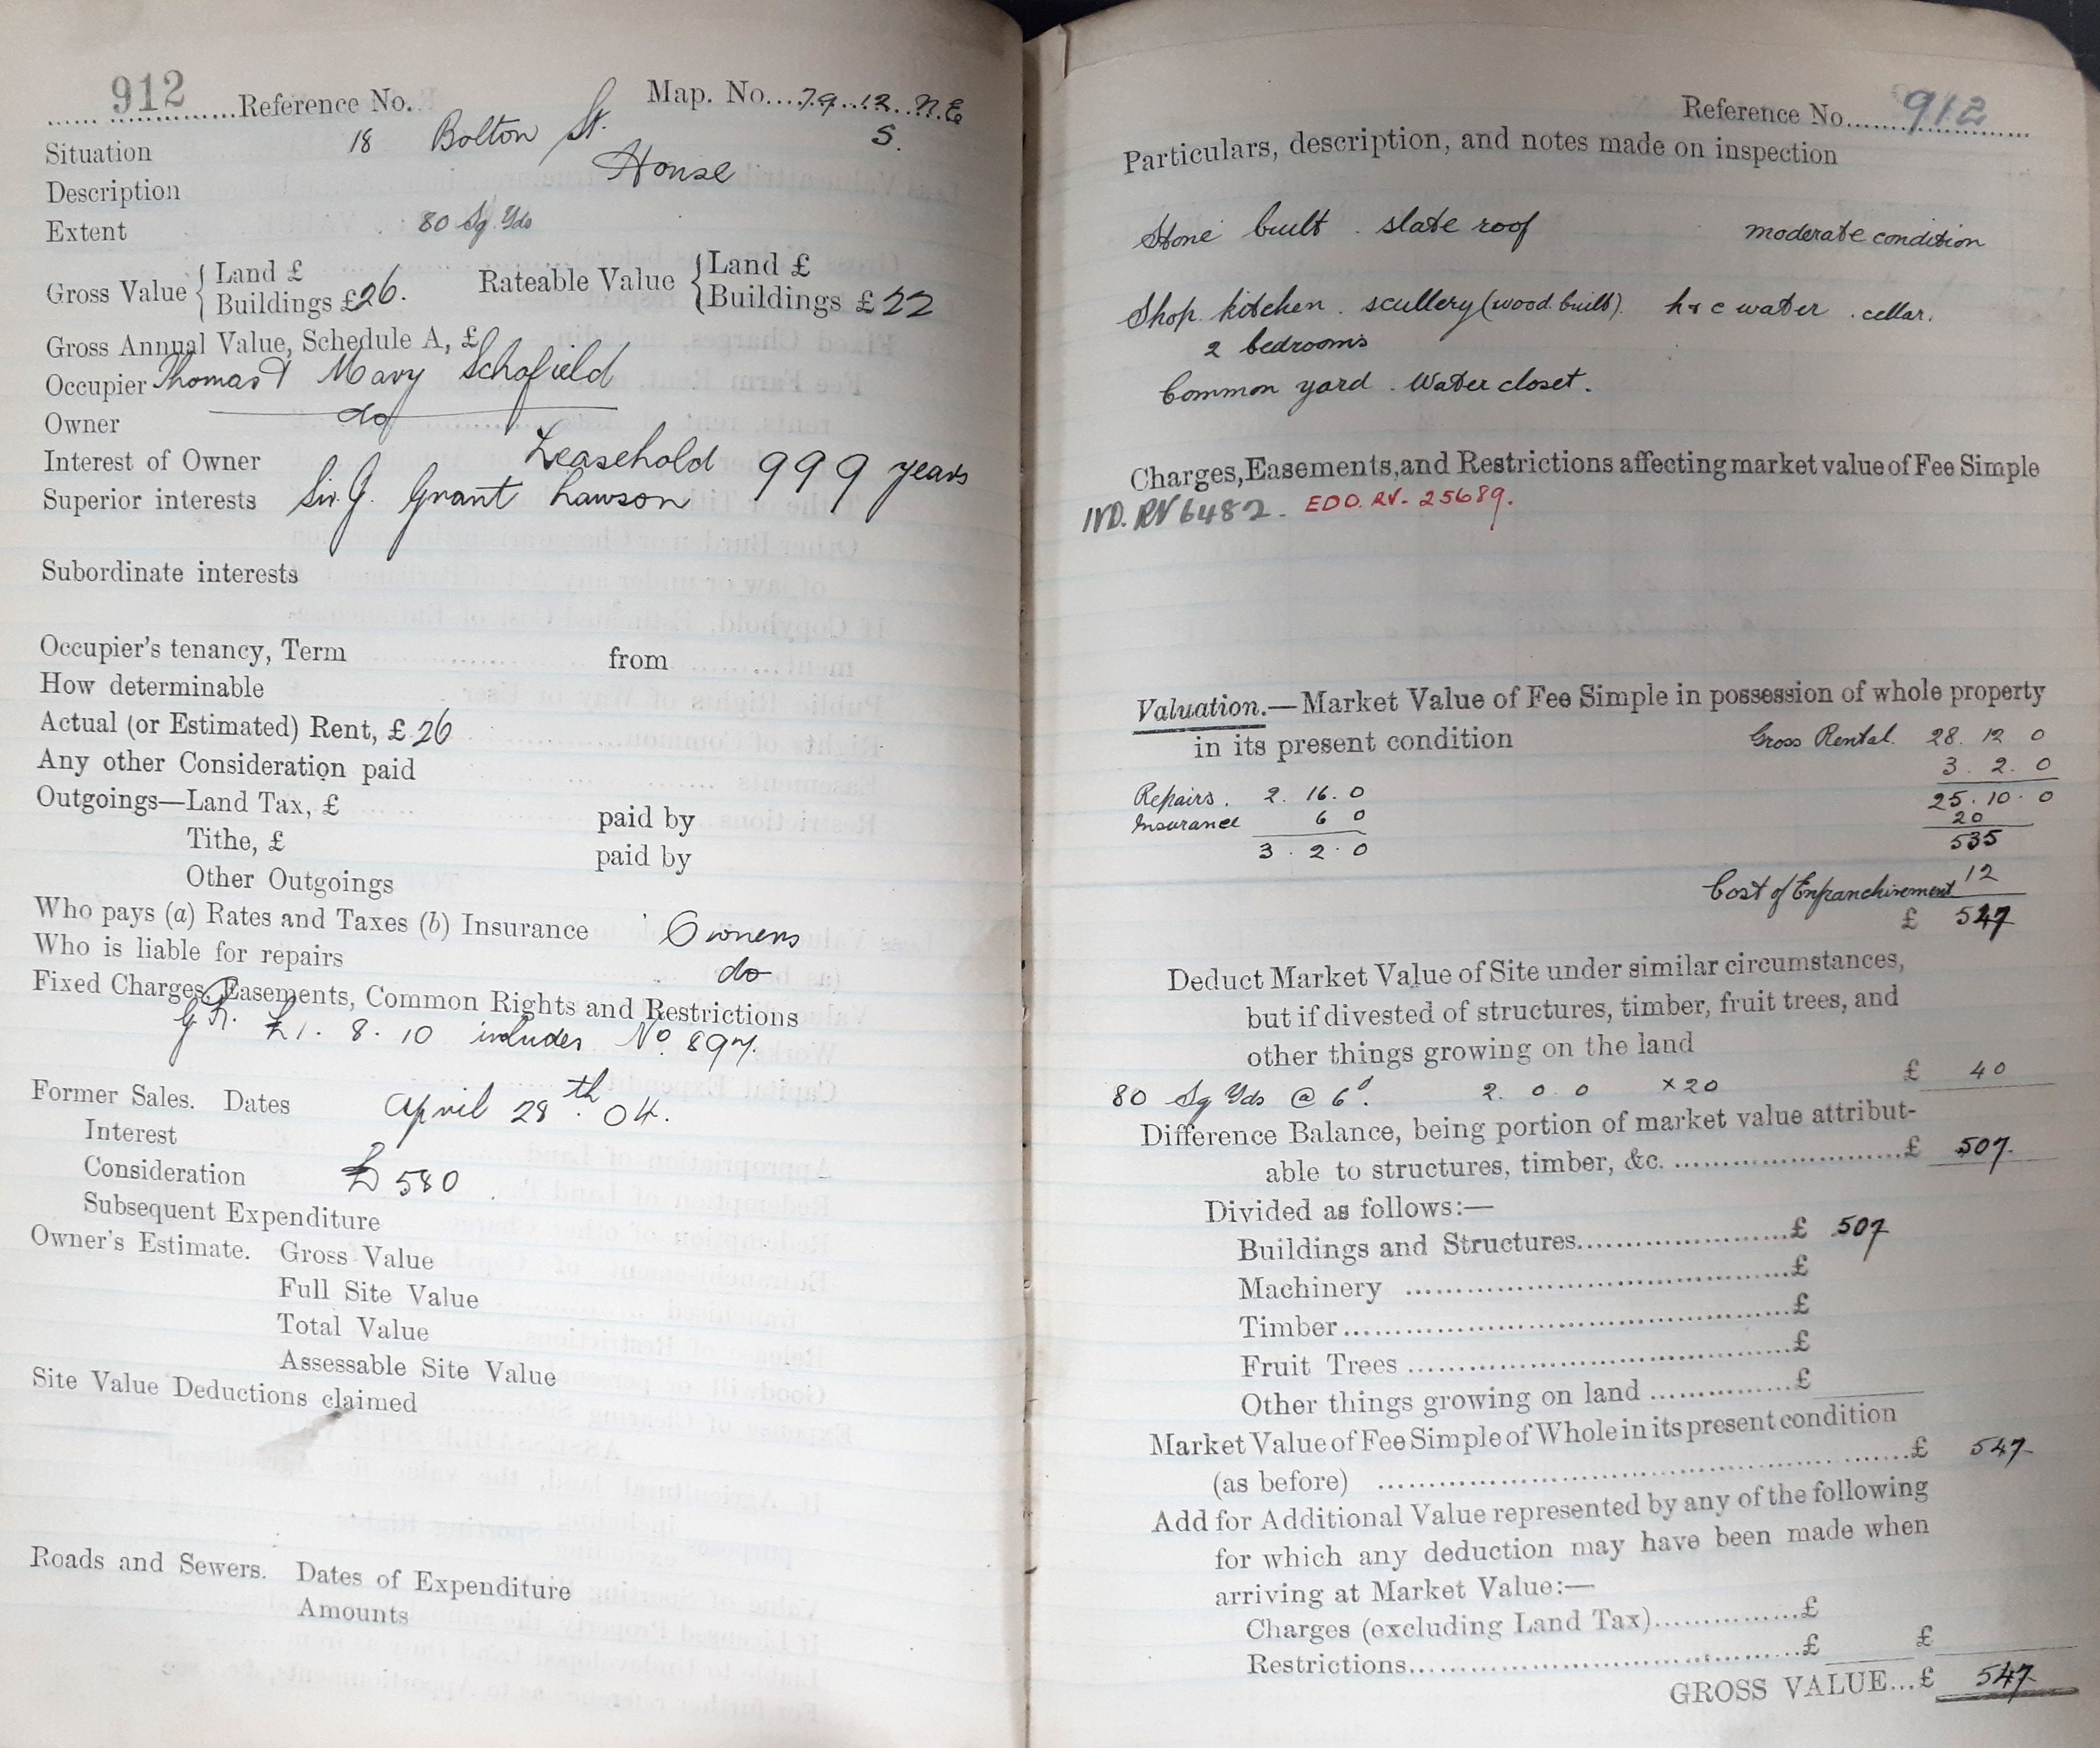 912 ........Reference No. Map. No....79..12..N.E
S.
Situation 18 Bolton St.
Description House
Extent 80 Sq Yds
Gross Value { Land £ Rateable Value { Land £
Buildings £26. Buildings £22
Gross Annual Value, Schedule A, £
Occupier Thomas & Mary Schofield
Owner do
Interest of Owner Leasehold 999 years
Superior interests Sir J. Grant Lawson
Subordinate interests
Occupier's tenancy, Term from
How determinable
Actual (or Estimated) Rent, £ 26
Any other Consideration paid
Outgoings—Land Tax, £ paid by
Tithe, £ paid by
Other Outgoings
Who pays (a) Rates and Taxes (b) Insurance Owners
Who is liable for repairs do
Fixed Charges, Easements, Common Rights and Restrictions
G.R. £1. 8. 10 includes No. 897.
Former Sales. Dates April 28th. 04.
Interest
Consideration £580.
Subsequent Expenditure
Owner's Estimate. Gross Value
Full Site Value
Total Value
Assessable Site Value
Site Value Deductions claimed
Roads and Sewers. Dates of Expenditure
Amounts
Reference No......912......
Particulars, description, and notes made on inspection
Stone built . slate roof moderate condition
Shop. kitchen . scullery (wood built). h & c water . cellar.
2 bedrooms
Common yard . Water closet.
Charges, Easements, and Restrictions affecting market value of Fee Simple
IVD. RV 6482. EDO. RV- 25689.
Valuation.—Market Value of Fee Simple in possession of whole property
in its present condition Gross Rental. 28. 12 0
3. 2. 0
Repairs. 2. 16. 0 25. 10. 0
Insurance 6 0 20
3. 2. 0 535
Cost of Enfranchisement 12
£ 547
Deduct Market Value of Site under similar circumstances,
but if divested of structures, timber, fruit trees, and
other things growing on the land
80 Sq Yds @ 6d. 2. 0. 0 x20 £ 40
Difference Balance, being portion of market value attribut-
able to structures, timber, &c. ........................£ 507.
Divided as follows:—
Buildings and Structures......................£ 507
Machinery ........................................£
Timber..............................................£
Fruit Trees ........................................£
Other things growing on land ..............£
Market Value of Fee Simple of Whole in its present condition
(as before) ........................................................£ 547
Add for Additional Value represented by any of the following
for which any deduction may have been made when
arriving at Market Value:—
Charges (excluding Land Tax)...............£
Restrictions..........................................£ £
GROSS VALUE...£ 547